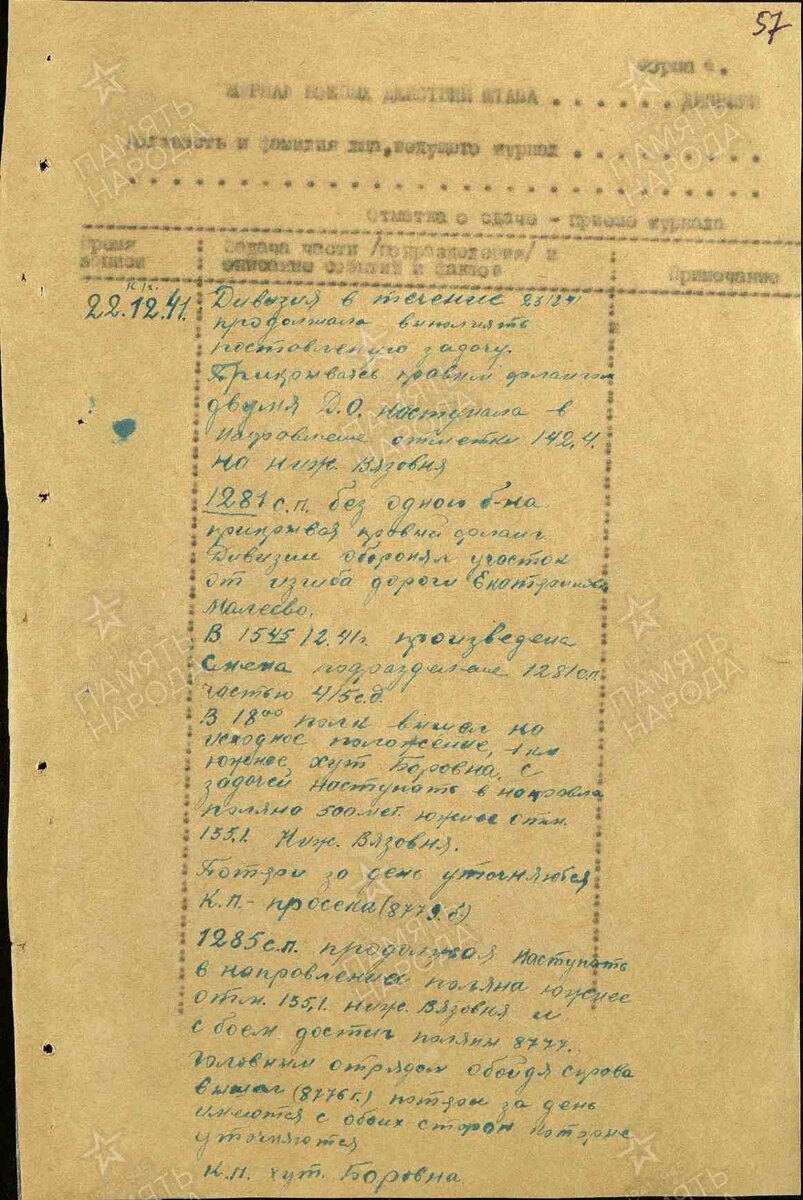 57
Форма 6.
ЖУРНАЛ БОЕВЫХ ДЕЙСТВИЙ ШТАБА . . . . . . ДИВИЗИИ
Должность и фамилия лица, ведущего журнал . . . . . . . . .
Отметка о сдаче - приеме журнала
Время записи
Задача части /подразделения/ и
описание событий и фактов
Примечание
22.12.41.
Дивизия в течение
продолжала выполнять
поставленную задачу.
Прикрываясь правым флангом
двумя Д.О. наступала в
направление отметки 142,4.
на ниж. Вязовня
1281 с.п. без одного б-на
прикрывая правый фланг
Дивизии оборонял участок
от изгиба дороги Екатериновка
Малеево.
В 15 45 12.41г. произведена
Смена подразделение 1281 сп.
частью 415 с.д.
В 18 00 полк вышел на
исходное положение, 1 км
южнее хут. Боровна, с
задачей наступать в направле
поляна 500 мет. южнее отм.
135.1. Ниж. Вязовня.
Потери за день уточняются
К.П.- просека (8779.б)
1285 с.п. продолжая наступать
в направлении поляна южнее
отм. 135,1. ниж. Вязовня и
с боем достиг поляны 8777.
головным отрядом обойдя справа
вышел (8776г.) потери за день
имеются с обоих сторон которые
уточняются
К.П. хут. Боровна
ПАМЯТЬ НАРОДА